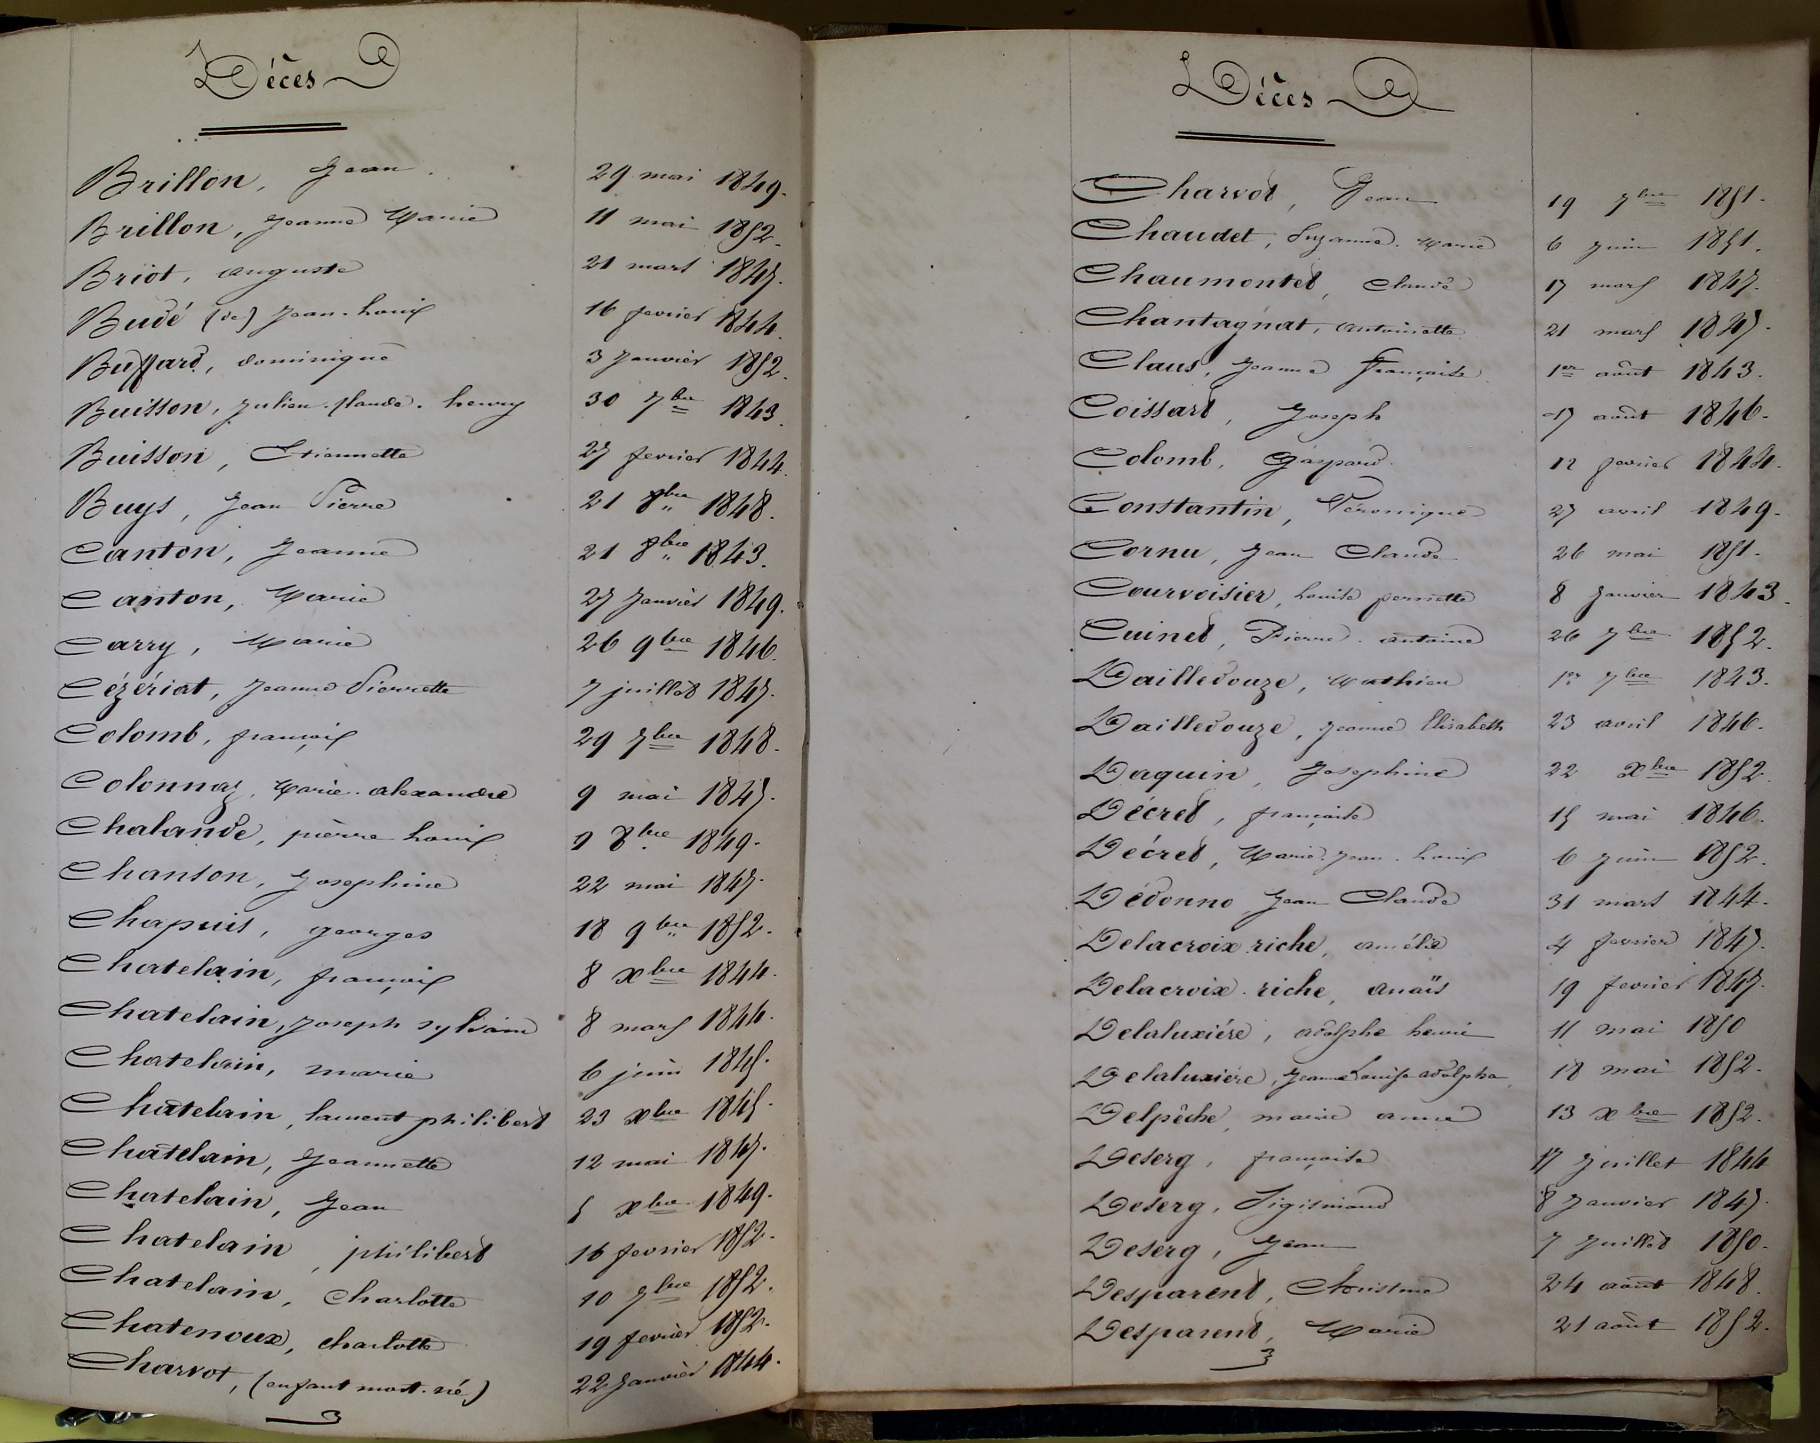 Décès
Brillon, Jean. 29 mai 1849.
Brillon, Jeanne Marie 11 mai 1852.
Briot, auguste 21 mars 1847.
Budé (de) Jean-louis 16 fevrier 1844.
Buffard, dominique 3 Janvier 1852.
Buisson, Julien-Claude-henry 30 7bre 1843
Buisson, Etiennette 27 fevrier 1844.
Buys, Jean Pierre 21 8bre 1848.
Canton, Jeanne 21 8bre 1843.
Canton, Marie 27 Janvier 1849.
Carry, Marie 26 9bre 1846.
Cézériat, Jeanne Pierrette 7 juillet 1847.
Colomb, françois 29 7bre 1848.
Colonnaz, Marie-alexandre 9 mai 1847.
Chalande, pierre louis 9 8bre 1849.
Chanson, Josephine 22 mai 1847.
Chapuis, georges 18 9bre 1852.
Chatelain, françois 8 xbre 1844.
Chatelain, Joseph sylvain 8 mars 1844.
Chatelain, marie 6 juin 1845.
Chatelain, laurent philibert 23 xbre 1845.
Chatelain, Jeannette 12 mai 1847.
Chatelain, Jean 5 xbre 1849.
Chatelain, philibert 16 fevrier 1852.
Chatelain, Charlotte 10 7bre 1852.
Chatenoux, charlotte 19 fevrier 1852.
Charvot, (enfant mort-né) 22 Janvier 1844.
Décès
Charvot, Jean 19 7bre 1851.
Chaudet, Suzanne-Marie 6 juin 1851.
Chaumontet, Claude 17 mars 1847.
Chantagnat, antoinette 21 mars 1847.
Claus, Jeanne françoise 1er août 1843.
Coissart, Joseph 17 août 1846.
Colomb, Gaspard 12 fevrier 1844.
Constantin, Véronique 27 avril 1849.
Cornu, Jean Claude 26 mai 1851.
Courvoisier, louise pernette 8 Janvier 1843.
Cuinet, Pierre-antoine 26 7bre 1852.
Dailledouze, Mathieu 1er 7bre 1843.
Dailledouze, Jeanne Elisabeth 23 avril 1846.
Daquin, Josephine 22 xbre 1852.
Décret, françoise 15 mai 1846.
Décret, Marie-Jean-louis 6 juin 1852.
Dédonno Jean Claude 31 mars 1844.
Delacroix riche, amélie 4 fevrier 1847.
Delacroix-riche, anaïs 19 fevrier 1847.
Delaluxiére, adolphe henri 11 mai 1850
Delaluxiére, Jeanne Louise adolpha 18 mai 1852.
Delpêche, marie anne 13 xbre 1852.
Deserg, françoise 17 Juillet 1844
Deserg, Sigismond 8 Janvier 1847.
Deserg, Jean 7 Juillet 1850.
Desparent, Christine 24 août 1848.
Desparent, Marie 21 août 1852.